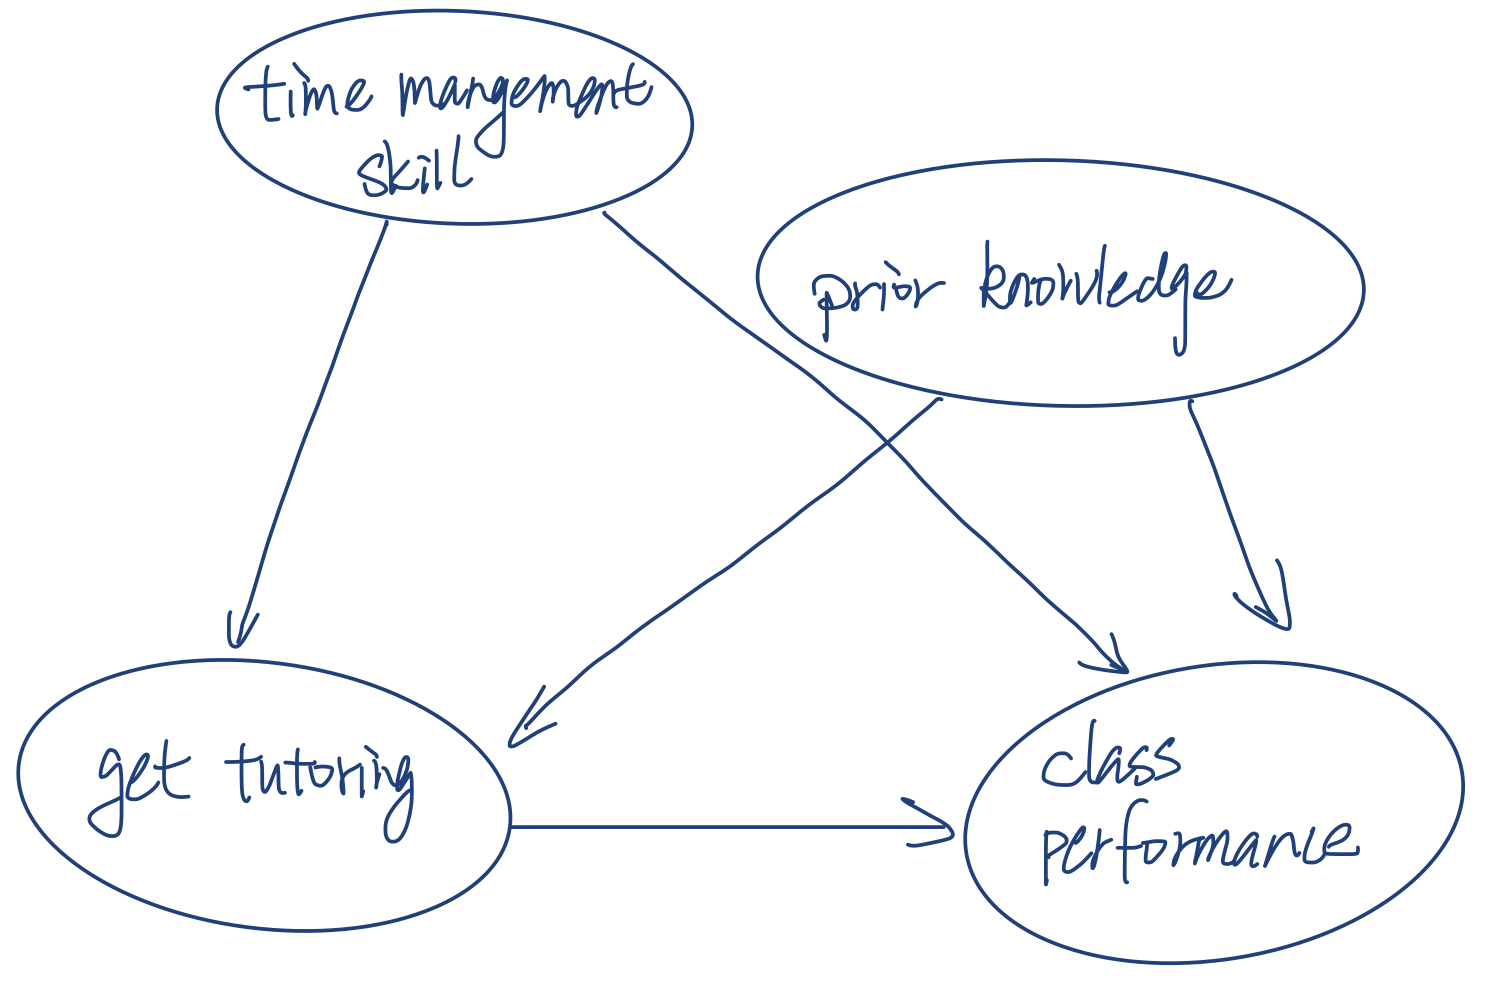 time mangement
skill
prior knowledge
get tutoring
class
performance